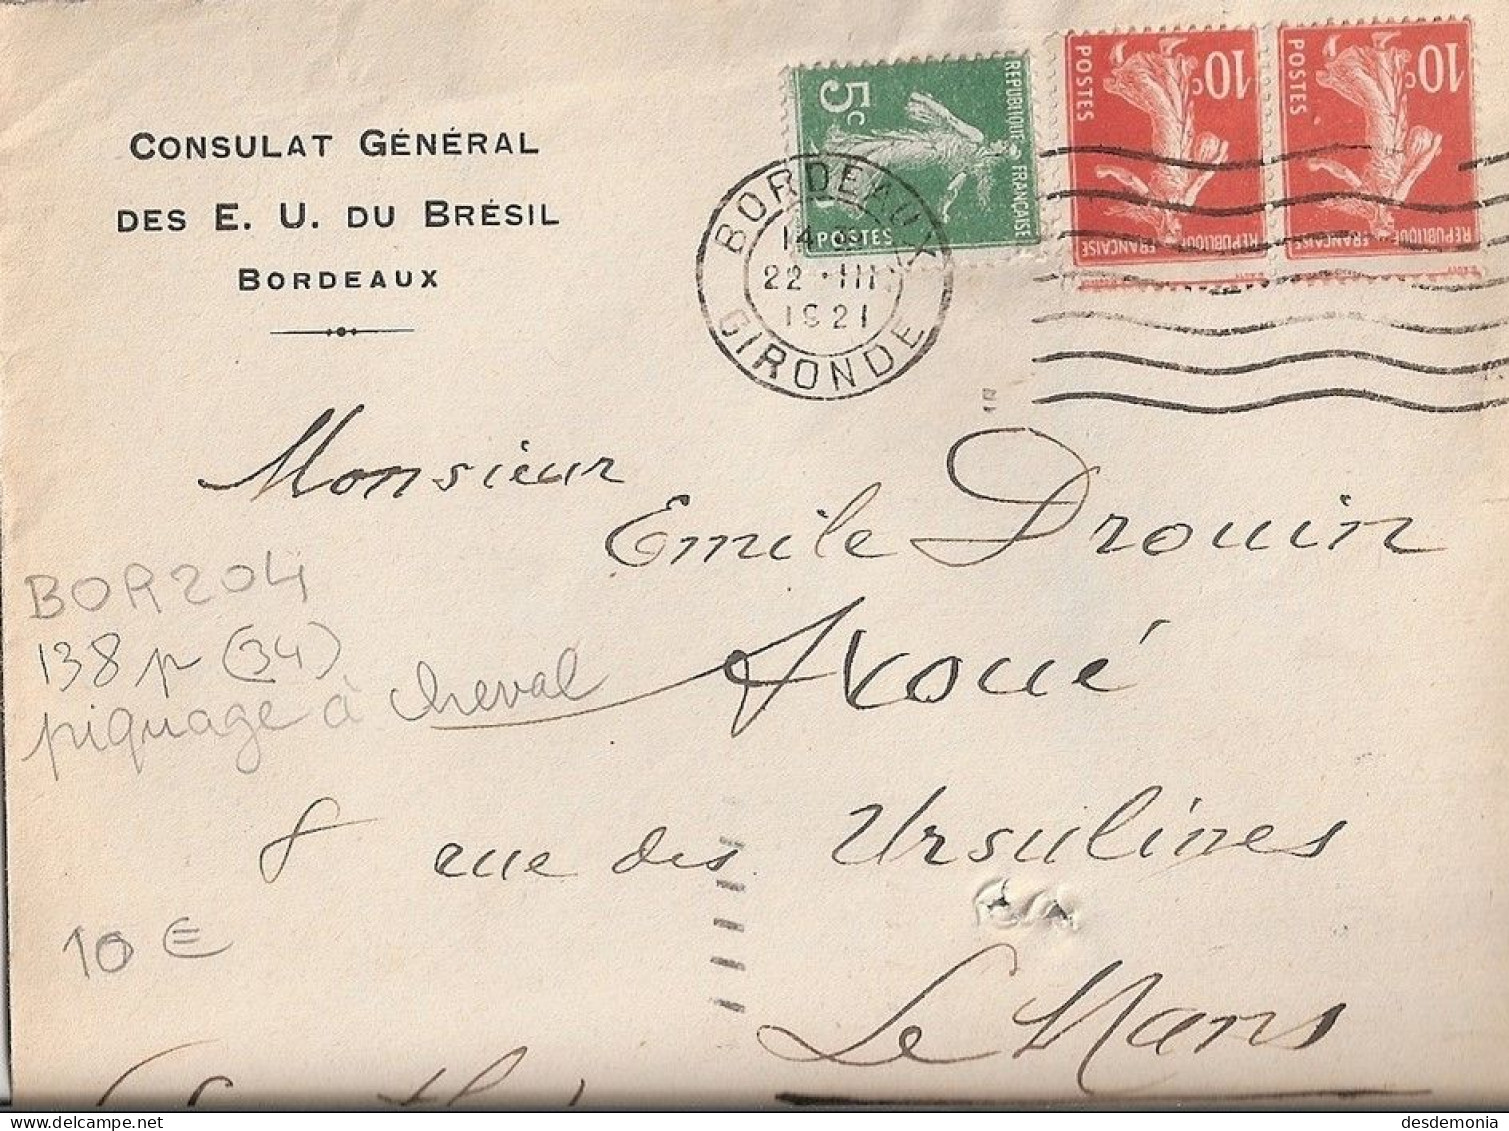 CONSULAT GÉNÉRAL
DES E. U. DU BRÉSIL
BORDEAUX
5c
RÉPUBLIQUE FRANÇAISE
POSTES
10c
POSTES
RÉPUBLIQUE FRANÇAISE
10c
POSTES
RÉPUBLIQUE FRANÇAISE
BORDEAUX
14
22 · III
1921
GIRONDE
Monsieur
Emile Drouin
Avoué
BOR204
138 p (34)
piquage à cheval
8 rue des Ursulines
10 €
Le Mans
desdemonia